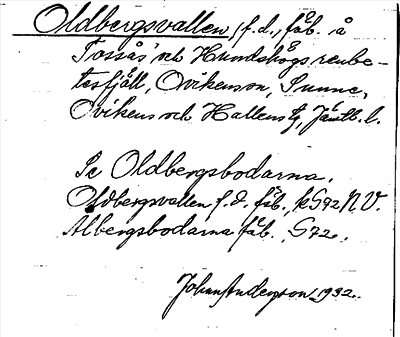 Oldbergsvallen, f.d., fäb. å
Torsås och Hundshögs renbe-
tesfjäll, Ovikens sn, Sunne,
Ovikens och Hallens tg, Jämtl. l.
Se Oldbergsbodarna.
Oldbergsvallen f.d. fäb., k S72 N.V.
Ålbergsbodarna fäb. S72.
Johan Anderson 1932.